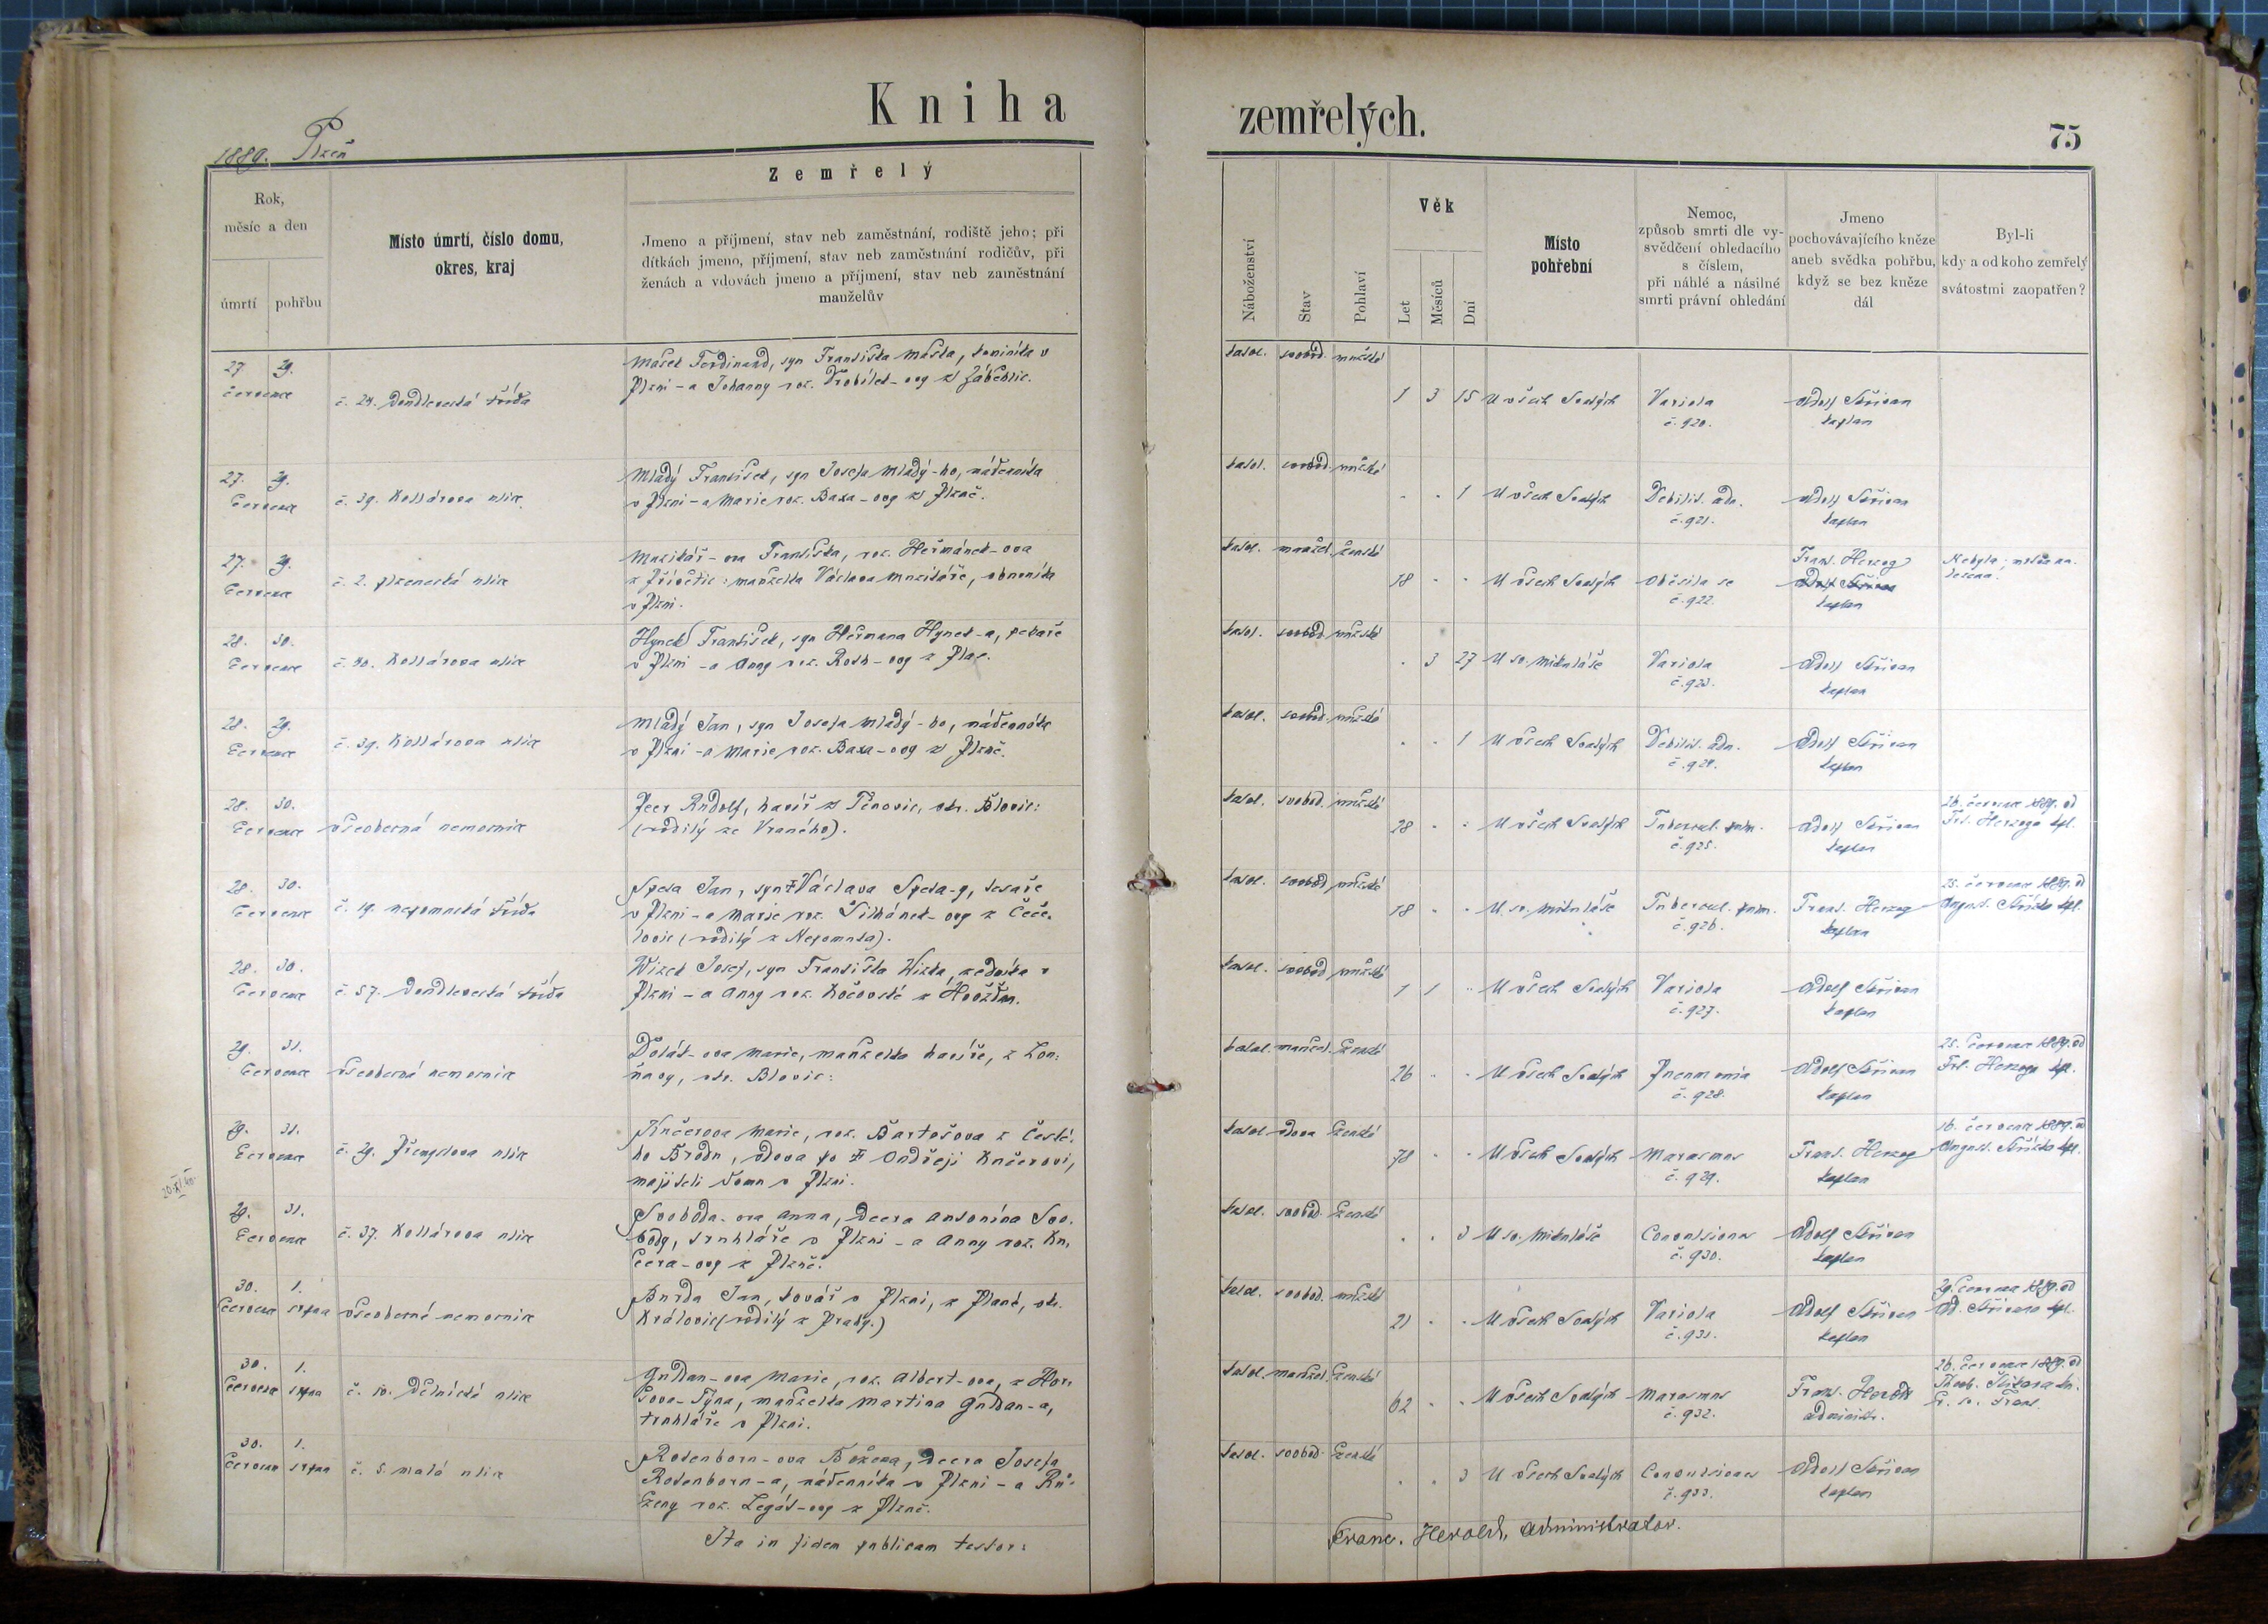 Kniha zemřelých.
75
1889. Plzeň
Zemřelý
Rok,
měsíc a den
úmrtí
pohřbu
Místo úmrtí, číslo domu,
okres, kraj
Jmeno a příjmení, stav neb zaměstnání, rodiště jeho; při
dítkách jmeno, příjmení, stav neb zaměstnání rodičův, při
ženách a vdovách jmeno a příjmení, stav neb zaměstnání
manželův
Náboženství
Stav
Pohlaví
Věk
Let
Měsíců
Dní
Místo
pohřební
Nemoc,
způsob smrti dle vy-
svědčení ohledacího
s číslem,
při náhlé a násilné
smrti právní ohledání
Jmeno
pochovávajícího kněze
aneb svědka pohřbu,
když se bez kněze
dál
Byl-li
kdy a od koho zemřelý
svátostmi zaopatřen?
27. 29.
července
č. 24. Doudlevecká třída
Mašek Ferdinand, syn Františka Maška, kominíka v
Plzni - a Johanny roz. Vrobílek-ovy z Záběhlic.
katol. svobod. mužské
1 3 15 U všech Svatých
Variola
č. 920.
Adolf Skřivan
kaplan
27. 29.
července
č. 39. Kollárova ulice
Mladý František, syn Josefa Mladý-ho, nádenníka
v Plzni - a Marie roz. Baxa-ovy z Plzně.
katol. svobod. mužské
. . 1 U všech Svatých
Debilit. adn.
č. 921.
Adolf Skřivan
kaplan
27. 29.
července
č. 2. plzenecká ulice
Muzikář-ova Františka, roz. Heřmánek-ova
z Přívětic: manželka Václava Muzikáře, obuvníka
v Plzni.
katol. manžel. ženské
18 . . U všech Svatých
Oběsila se
č. 922.
Frant. Herzog
Adolf Skřivan
kaplan
Nebyla; mrtva na-
lezena.
28. 30.
července
č. 40. Kollárova ulice
Hynek František, syn Heřmana Hynek-a, pekaře
v Plzni - a Anny roz. Roth-ovy z Plas.
katol. svobod. mužské
. 3 27 U sv. Mikuláše
Variola
č. 923.
Adolf Skřivan
kaplan
28. 29.
července
č. 39. Kollárova ulice
Mladý Jan, syn Josefa Mladý-ho, nádenníka
v Plzni - a Marie roz. Baxa-ovy z Plzně.
katol. svobod. mužské
. . 1 U všech Svatých
Debilit. adn.
č. 924.
Adolf Skřivan
kaplan
28. 30.
července
všeobecná nemocnice
Peer Rudolf, havíř z Těnovic, okr. Blovic:
(rodilý ze Vraného).
katol. svobod. mužské
28 . . U všech Svatých
Tubercul. pulm.
č. 925.
Adolf Skřivan
kaplan
26. července 1889. od
Frt. Herzoga kpl.
28. 30.
července
č. 19. nepomucká třída
Speda Jan, syn † Václava Speda-y, tesaře
v Plzni - a Marie roz. Šilhánek-ovy z Čeče-
lovic (rodilý z Nepomuka).
katol. svobod. mužské
18 . . U sv. Mikuláše
Tubercul. pulm.
č. 926.
Frant. Herzog
kaplan
25. července 1889. od
August. Stříšky kpl.
28. 30.
července
č. 57. Doudlevecká třída
Wizek Josef, syn Františka Wizka, zedníka v
Plzni - a Anny roz. Kočovské z Hvožďan.
katol. svobod. mužské
1 1 . U všech Svatých
Variola
č. 927.
Adolf Skřivan
kaplan
29. 31.
července
všeobecná nemocnice
Dolát-ova Marie, manželka havíře, z Lou-
ňovy, okr. Blovic:
katol. manžel. ženské
26 . . U všech Svatých
Pneumonia
č. 928.
Adolf Skřivan
kaplan
25. července 1889. od
Frt. Herzoga kpl.
29. 31.
července
č. 29. Přemyslova ulice
Kučerova Marie, roz. Bartošova z České-
ho Brodu, vdova po † Ondřeji Kučerovi,
majiteli domu v Plzni.
katol. vdova ženské
78 . . U všech Svatých
Marasmus
č. 929.
Frant. Herzog
kaplan
16. července 1889. od
August. Stříšky kpl.
29. 31.
července
č. 37. Kollárova ulice
Svoboda-ova Anna, dcera Antonína Svo-
body, truhláře v Plzni - a Anny roz. Ku-
čera-ovy z Plzně.
katol. svobod. ženské
. . 3 U sv. Mikuláše
Convulsiones
č. 930.
Adolf Skřivan
kaplan
30. 1.
července srpna
všeobecné nemocnice
Burda Jan, kovář v Plzni, z Plané, okr.
Královic (rodilý z Prahy.)
katol. svobod. mužské
21 . . U všech Svatých
Variola
č. 931.
Adolf Skřivan
kaplan
29. července 1889. od
Ad. Skřivana kpl.
30. 1.
července srpna
č. 10. Dělnická ulice
Guldan-ova Marie, roz. Albert-ova, z Hor-
šova-Týna, manželka Martina Guldan-a,
truhláře v Plzni.
katol. manžel. ženské
62 . . U všech Svatých
Marasmus
č. 932.
Franc. Herold
administr.
26. července 1889. od
30. 1.
července srpna
č. 5. malá ulice
Rodenborn-ova Božena, dcera Josefa
Rodenborn-a, nádenníka v Plzni - a Rů-
ženy roz. Legát-ovy z Plzně.
katol. svobod. ženské
. . 3 U všech Svatých
Convulsiones
č. 933.
Adolf Skřivan
kaplan
Ita in fidem publicam testor:
Franc. Herold, administrator.